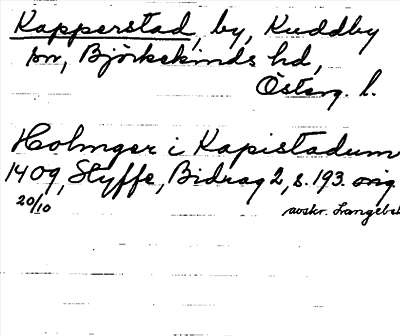 Kapperstad, by, Kuddby
sn, Björkekinds hd,
Österg. l.
Holmger i Kapistadum
1409, Styffe, Bidrag 2, s. 193. orig.
20/10
avskr. Langebek